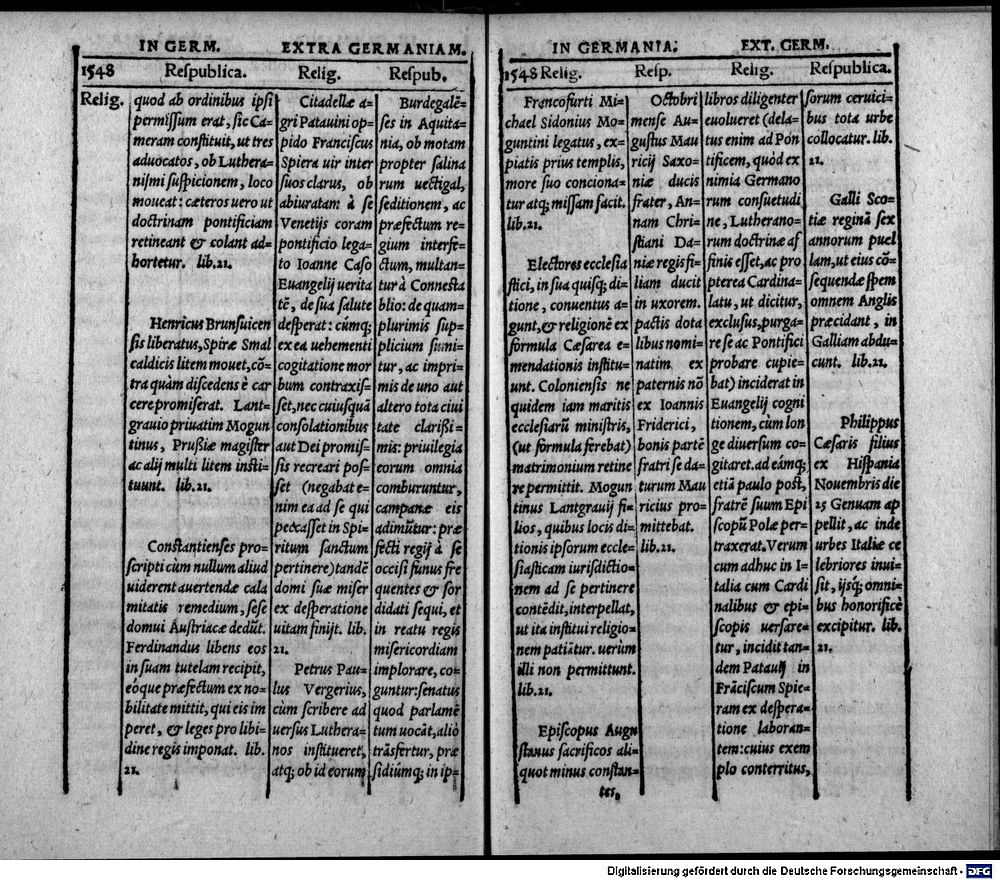 IN GERM. EXTRA GERMANIAM.
1548 Respublica. Relig. Respub.
Relig.
quod ab ordinibus ipsi
permissum erat, sic Ca-
meram constituit, ut tres
aduocatos, ob Luthera-
nismi suspicionem, loco
moueat: cæteros uero ut
doctrinam pontificiam
retineant & colant ad-
hortetur. lib.21.
Henricus Brunsuicen
sis liberatus, Spiræ Smal
caldicis litem mouet, cō-
tra quàm discedens è car
cere promiserat. Lant-
grauio priuatim Mogun
tinus, Prußiæ magister
ac alij multi litem insti-
tuunt. lib.21.
Constantienses pro-
scripti cùm nullum aliud
uiderent auertendæ cala
mitatis remedium, sese
domui Austriacæ dedūt.
Ferdinandus libens eos
in suam tutelam recipit,
eóque præfectum ex no-
bilitate mittit, qui eis im
peret, & leges pro libi-
dine regis imponat. lib.
21.
Citadellæ a-
gri Patauini op-
pido Franciscus
Spiera uir inter
suos clarus, ob
abiuratam à se
Venetijs coram
pontificio lega-
to Ioanne Caso
Euangelij uerita
tē, de sua salute
desperat: cúmq;
ex ea uehementi
cogitatione mor
bum contraxis-
set, nec cuiusquā
consolationibus
aut Dei promis-
sis recreari pos-
set (negabat e-
nim ea ad se qui
peccasset in Spi-
ritum sanctum
pertinere) tandē
domi suæ miser
ex desperatione
uitam finijt. lib.
21.
Petrus Pau-
lus Vergerius,
cùm scribere ad
uersus Luthera-
nos institueret,
atq; ob id eorum
Burdegalē-
ses in Aquita-
nia, ob motam
propter salina
rum uectigal,
seditionem, ac
præfectum re-
gium interfe-
ctum, multan-
tur à Connesta
blio: de quam-
plurimis sup-
plicium sumi-
tur, ac impri-
mis de uno aut
altero tota ciui
tate clarißi-
mis: priuilegia
eorum omnia
comburuntur,
campanæ eis
adimūtur: præ
fecti regij à se
occisi funus fre
quentes & sor
didati sequi, et
in reatu regis
misericordiam
implorare, co-
guntur: senatus
quod parlamē
tum uocāt, aliò
trāsfertur, præ
sidiúmq; in ip-
IN GERMANIA. EXT. GERM.
1548 Relig. Resp. Relig. Respublica.
Francofurti Mi-
chael Sidonius Mo-
guntini legatus, ex-
piatis prius templis,
more suo conciona-
tur atq; missam facit.
lib.21.
Electores ecclesia
stici, in sua quisq; di-
tione, conuentus a-
gunt, & religionē ex
formula Cæsarea e-
mendationis institu-
unt. Coloniensis ne
quidem iam maritis
ecclesiarū ministris,
(ut formula ferebat)
matrimonium retine
re permittit. Mogun
tinus Lantgrauij fi-
lios, quibus locis di-
tionis ipsorum eccle-
siasticam iurisdictio-
nem ad se pertinere
contēdit, interpellat,
ut ita institui religio-
nem patiātur. uerum
illi non permittunt.
lib.21.
Episcopus Augu
stanus sacrificos ali-
quot minus constan-
tes,
Octobri
mense Au-
gustus Mau
ricij Saxo-
niæ ducis
frater, An-
nam Chri-
stiani Da-
niæ regis fi-
liam ducit
in uxorem.
pactis dota
libus nomi-
natim ex
paternis nō
ex Ioannis
Friderici,
bonis partē
fratri se da-
turum Mau
ricius pro-
mittebat.
lib.21.
libros diligenter
euolueret (dela-
tus enim ad Pon
tificem, quòd ex
nimia Germano
rum consuetudi
ne, Lutherano-
rum doctrinæ af
finis esset, ac pro
pterea Cardina-
latu, ut dicitur,
exclusus, purga-
re se ac Pontifici
probare cupie-
bat) inciderat in
Euangelij cogni
tionem, cùm lon
ge diuersum co-
gitaret. ad eámq;
etiā paulo post,
fratrē suum Epi
scopū Polæ per-
traxerat. Verum
cum adhuc in I-
talia cum Cardi
nalibus & epi-
scopis uersare-
tur, incidit tan-
dem Patauij in
Frāciscum Spie-
ram ex despera-
tione laboran-
tem: cuius exem
plo conterritus,
sorum ceruici-
bus tota urbe
collocatur. lib.
21.
Galli Sco-
tiæ reginā sex
annorum puel
lam, ut eius cō-
sequendæ spem
omnem Anglis
præcidant, in
Galliam abdu-
cunt. lib.21.
Philippus
Cæsaris filius
ex Hispania
Nouembris die
25 Genuam ap
pellit, ac inde
urbes Italiæ ce
lebriores inui-
sit, ijsq; omni-
bus honorificè
excipitur. lib.
21.
Digitalisierung gefördert durch die Deutsche Forschungsgemeinschaft - DFG